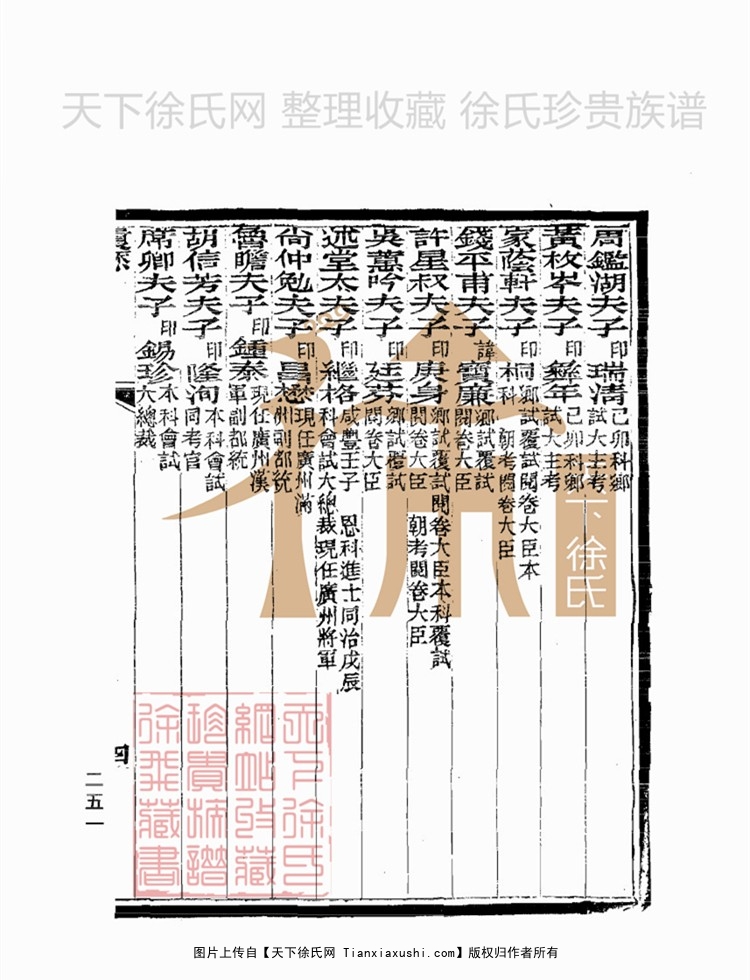 天下徐氏网 整理收藏 徐氏珍贵族谱
周鑑湖夫子印瑞清己卯科鄉試大主考
黃枚岑夫子印燮年己卯科鄉試大主考
家蔭軒夫子印桐鄉試覆試閱卷大臣本科朝考閱卷大臣
錢平甫夫子諱寶廉鄉試覆試閱卷大臣
許星叔夫子印庚身鄉試覆試閱卷大臣本科覆試閱卷大臣 朝考閱卷大臣
吳蕙吟夫子印廷芬鄉試覆試閱卷大臣
述堂太夫子印繼格咸豐壬子 恩科進士同治戊辰科會試大總裁現任廣州將軍
尙仲勉夫子印昌懋現任廣州滿洲副都統
魯瞻夫子印鍾泰現任廣州漢軍副都統
胡信芳夫子印隆洵本科會試同考官
席卿夫子印錫珍本科會試大總裁
四
二五一
天下徐氏
天下徐氏
網站收藏
珍貴族譜
徐氏藏書
图片上传自【天下徐氏网 Tianxiaxushi.com】版权归作者所有